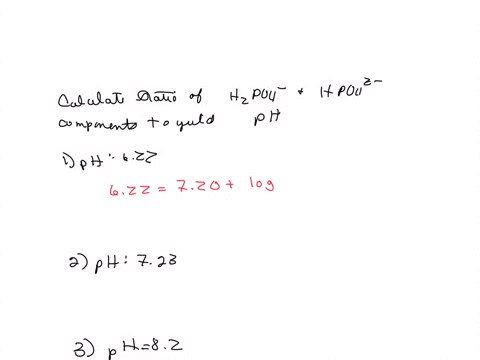 Calculate Ratio of H₂PO₄⁻ + HPO₄²⁻
components to yield pH
1) pH: 6.22
6.22 = 7.20 + log
2) pH: 7.23
3) pH=8.2